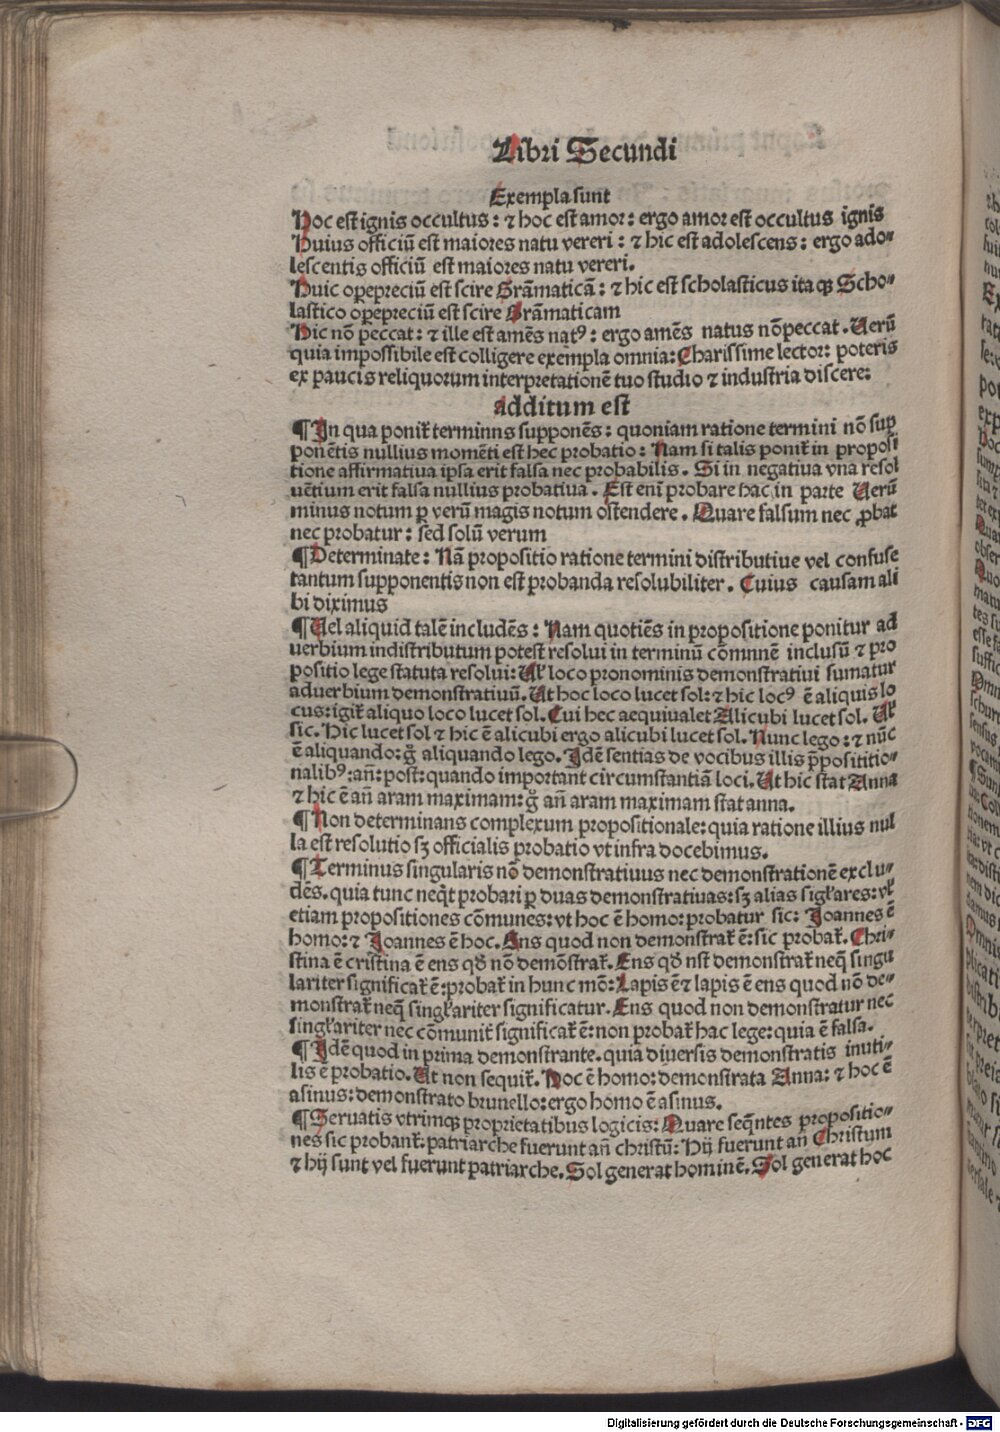 Libri Secundi
Exempla sunt
Hoc est ignis occultus: ⁊ hoc est amor: ergo amor est occultus ignis
Huius officiū est maiores natu vereri: ⁊ hic est adolescens: ergo ado-
lescentis officiū est maiores natu vereri.
Huic opepreciū est scire Grāmaticā: ⁊ hic est scholasticus itaqꝫ Scho-
lastico opepreciū est scire Grāmaticam
Hic nō peccat: ⁊ ille est amēs natꝰ: ergo amēs natus nō peccat. Uerū
quia impossibile est colligere exempla omnia: Charissime lector: poteris
ex paucis reliquorum interpretationē tuo studio ⁊ industria discere:
Additum est
¶ In qua ponit̄ terminns supponēs: quoniam ratione termini nō sup
ponētis nullius momēti est hec probatio: Nam si talis ponit̄ in proposi
tione affirmatiua ipsa erit falsa nec probabilis. Si in negatiua vna resol
uētium erit falsa nullius probatiua. Est enī probare hac in parte Uerū
minus notum ꝑ verū magis notum ostendere. Quare falsum nec ꝓbat
nec probatur: sed solū verum
¶ Determinate: Nā propositio ratione termini distributiue vel confuse
tantum supponentis non est probanda resolubiliter. Cuius causam ali
bi diximus
¶ Uel aliquid talē includēs: Nam quotiēs in propositione ponitur ad
uerbium indistributum potest resolui in terminū cōmnnē inclusū ⁊ pro
positio lege statuta resolui: Uł loco pronominis demonstratiui sumatur
aduerbium demonstratiuū. Ut hoc loco lucet sol: ⁊ hic locꝰ ē aliquis lo
cus: igit̄ aliquo loco lucet sol. Cui hec aequiualet Alicubi lucet sol. Uł
sic. Hic lucet sol ⁊ hic ē alicubi ergo alicubi lucet sol. Nunc lego: ⁊ nūc
ē aliquando: g̊ aliquando lego. Idē sentias de vocibus illis p̄posititio-
nalibꝰ: añ: post: quando important circumstantiā loci. Ut hic stat Anna
⁊ hic ē añ aram maximam: g̊ añ aram maximam stat anna.
¶ Non determinans complexum propositionale: quia ratione illius nul
la est resolutio sꝫ officialis probatio vt infra docebimus.
¶ Terminus singularis nō demonstratiuus nec demonstrationē exclu-
dēs. quia tunc neqͥt probari ꝑ duas demonstratiuas: sꝫ alias sigłares: vł
etiam propositiones cōmunes: vt hoc ē homo: probatur sic: Joannes ē
homo: ⁊ Joannes ē hoc. Ens quod non demonstrat̄ ē: sic probat̄. Chri-
stina ē cristina ē ens qd̄ nō demōstrat̄. Ens qd̄ nst demonstrat̄ neqꝫ singu
lariter significat̄ ē: probat̄ in hunc mō: Lapis ē ⁊ lapis ē ens quod nō de-
monstrat̄ neqꝫ singłariter significatur. Ens quod non demonstratur nec
singłariter nec cōmunit̄ significat̄ ē: non probat̄ hac lege: quia ē falsa.
¶ Idē quod in prima demonstrante. quia diuersis demonstratis inuti-
lis ē probatio. Ut non sequit̄. Hoc ē homo: demonstrata Anna: ⁊ hoc ē
asinus: demonstrato brunello: ergo homo ē asinus.
¶ Seruatis vtrimqꝫ proprietatibus logicis: Quare seq̄ntes propositio-
nes sic probant̄. patriarche fuerunt añ christū: Hij fuerunt añ Christum
⁊ hij sunt vel fuerunt patriarche. Sol generat hominē. Sol generat hoc
Digitalisierung gefördert durch die Deutsche Forschungsgemeinschaft - DFG